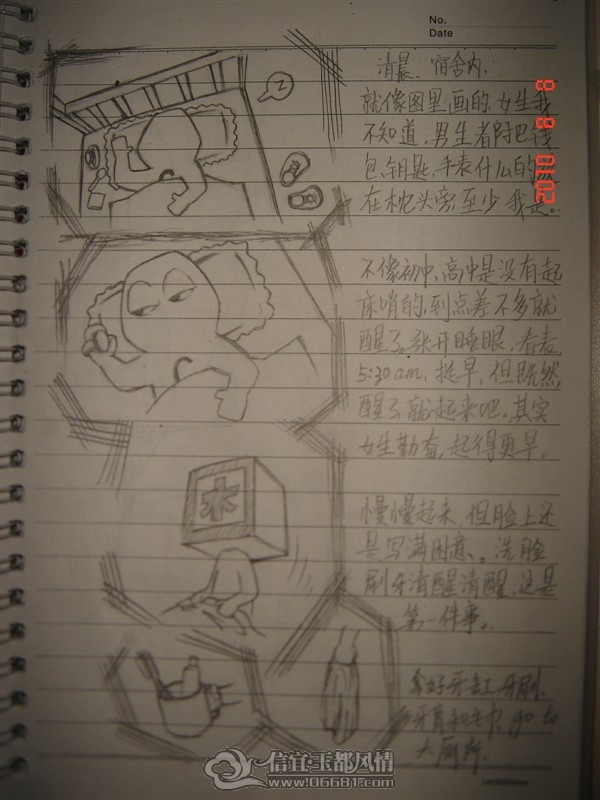 No.
Date
清晨、宿舍内.
就像图里画的,女生我
不知道,男生者阿巴钱
包、钥匙、手表什么的
在枕头旁.至少我是。
不像初中,高中是没有起
床哨的,到点差不多就
醒了,张开睡眼,看表
5:30am,挺早,但既然
醒了就起来吧。其实
女生勤奋,起得更早。
Z
慢慢起来,但脸上还
是写满困意、。洗脸
刷牙清醒清醒,这是
第一件事。
木
拿好牙缸、牙刷.
牙膏和毛巾, go to
大厕所.
信宜·玉都风情
www.06681.com